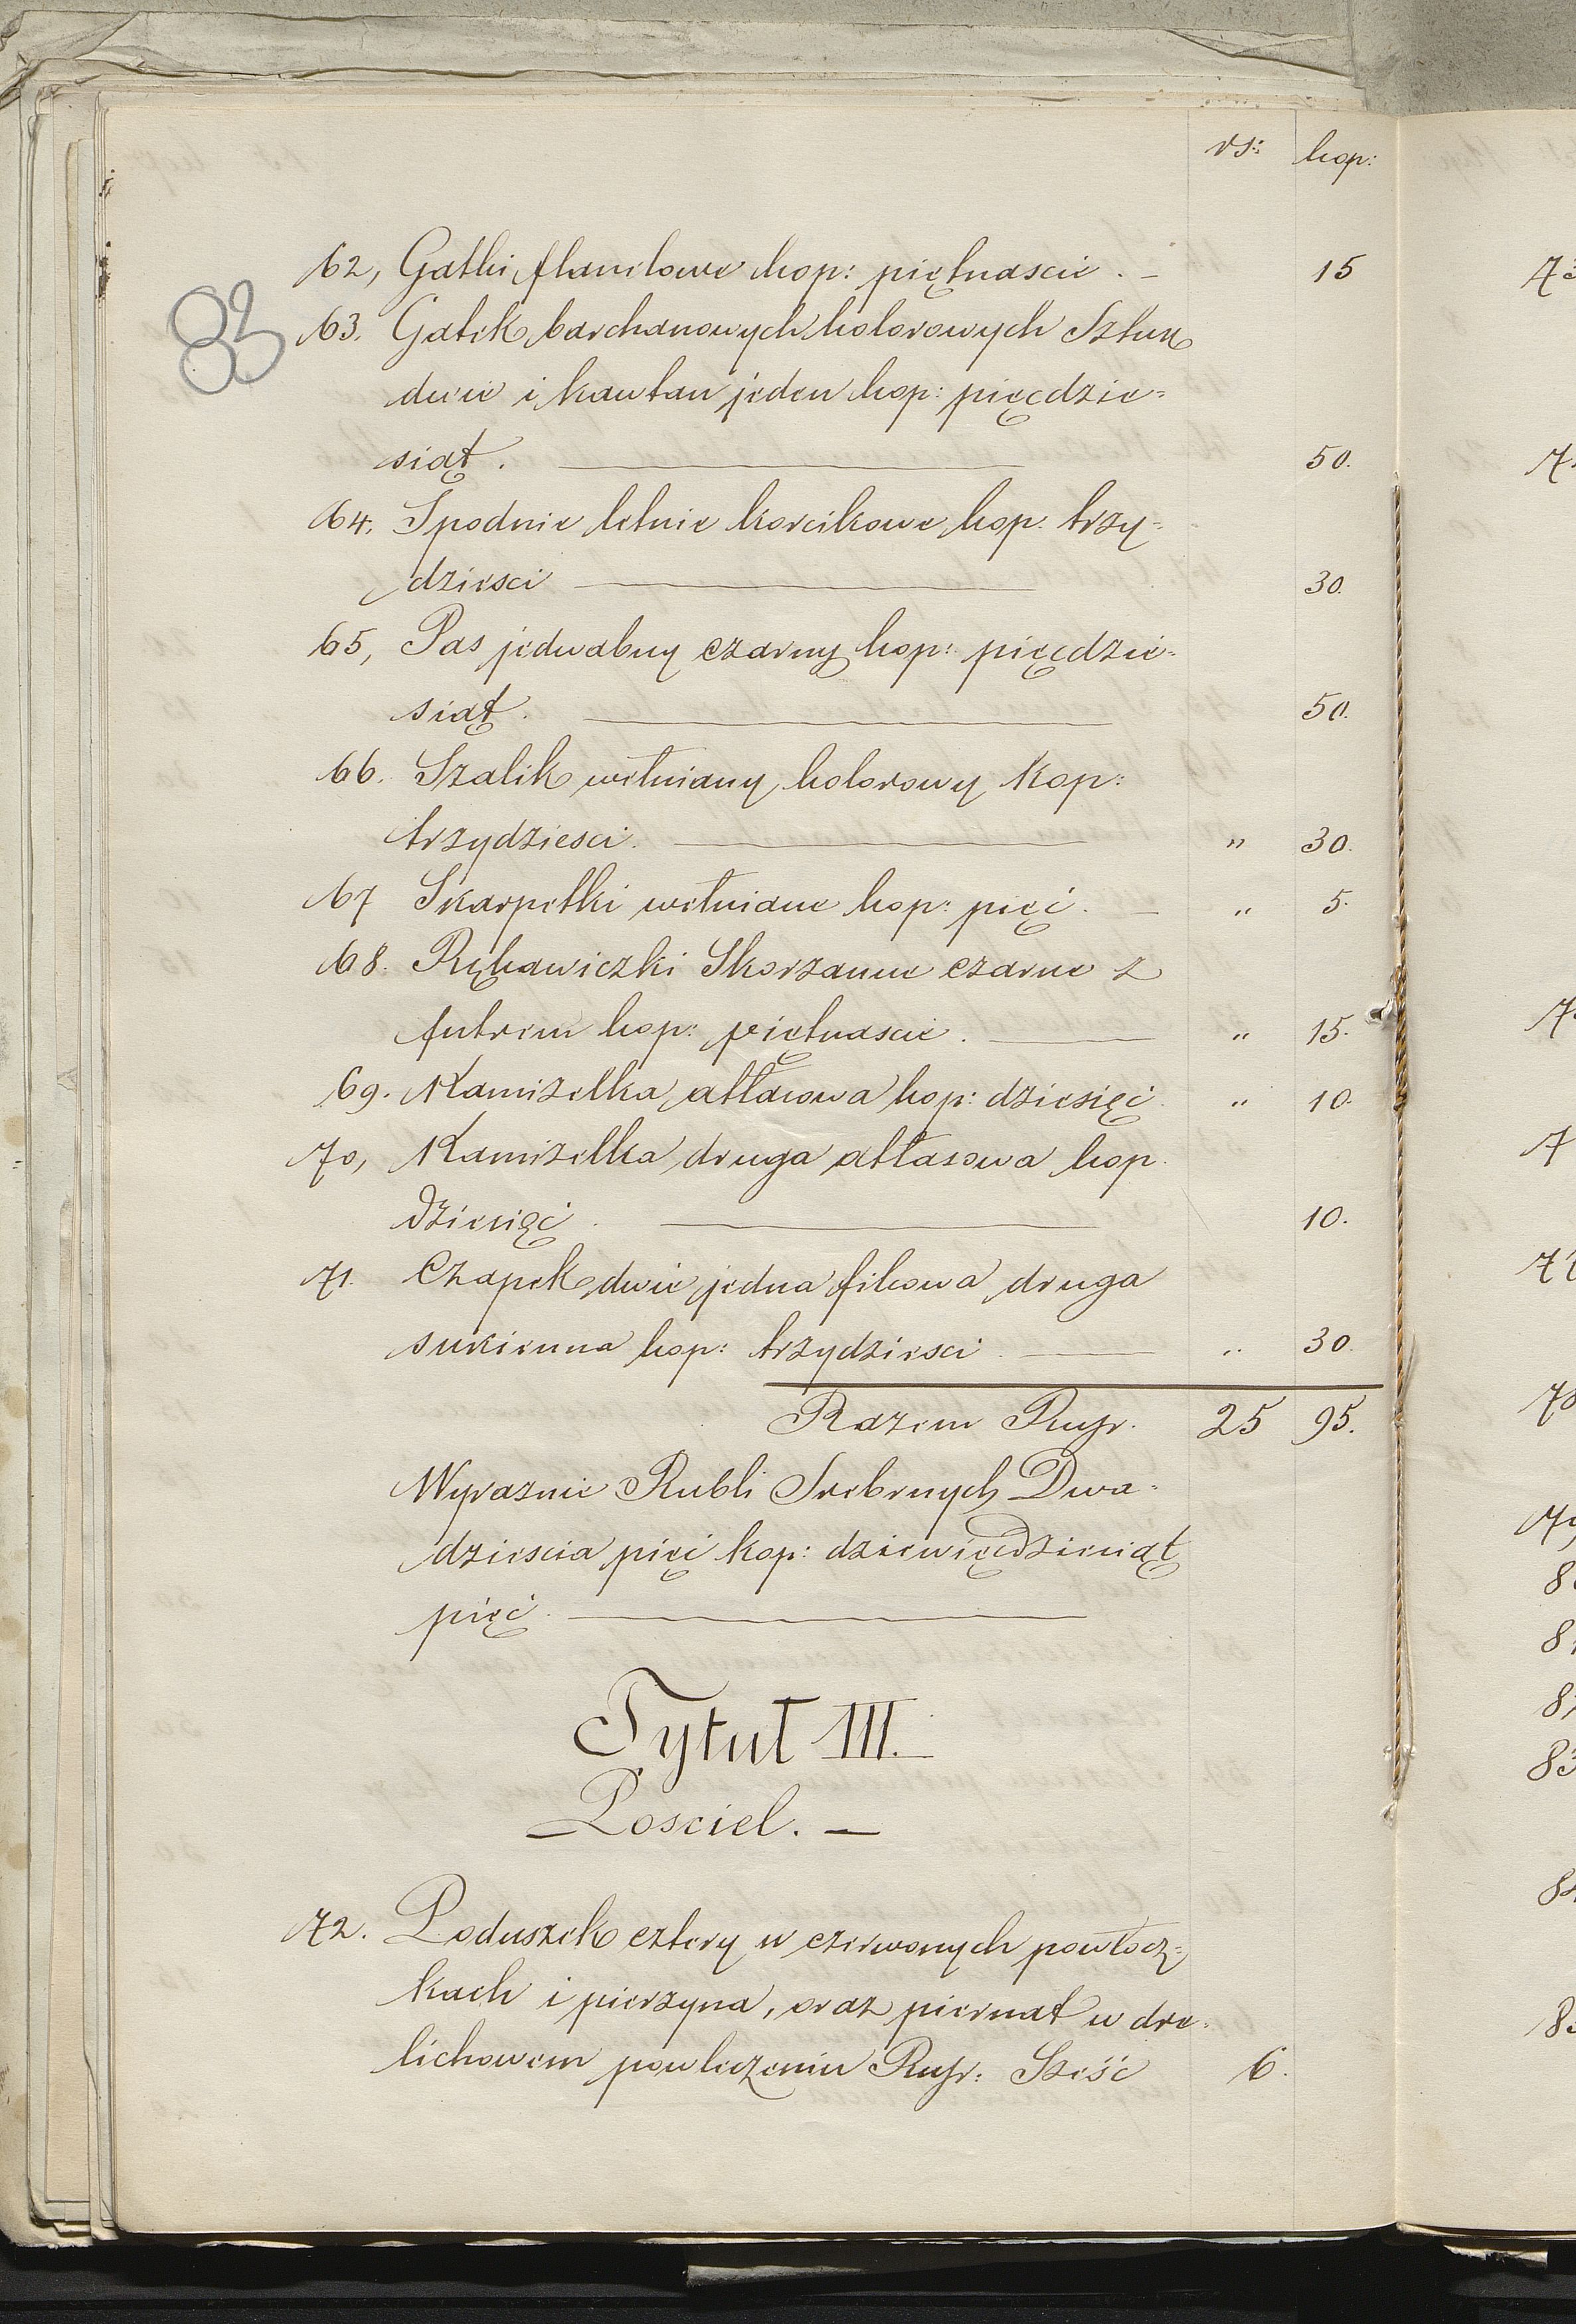 rs: kop:
62, Gatki flanelowe kop: piętnascie . — 15
83
63. Gatek barchanowych kolorowych Sztuk
dwie i kawtan jeden kop: pięcdzie=
siąt. — 50.
64. Spodnie letnie korcikowe kop. trzy=
dziesci — 30.
65, Pas jedwabny czarny kop: pięcdzie=
siąt. — 50.
66. Szalik wełniany kolorowy Kop:
trzydziesci. — " 30.
67 Skarpetki wełniane kop: pięć. — " 5.
68. Rękawiczki Skorzanne czarne z
futrem kop: piętnascie. — " 15.
69. Kamizelka atłasowa kop: dziesięć " 10.
70, Kamizelka druga atłasowa kop.
dziesięć . — 10.
71. Czapek dwie jedna filcowa druga
sukienna kop: trzydziesci . — " 30.
Razem Rusr. 25 95.
Wyraznie Rubli Srebrnych Dwa=
dziescia pięć kop: dziewięcdziesiąt
pięć. —
Tytuł III.
Posciel. —
72. Poduszek cztery w czerwonych powłocz=
kach i pierzyna, oraz piernat w dre=
lichowem powleczeniu Rusr: Sześć 6.